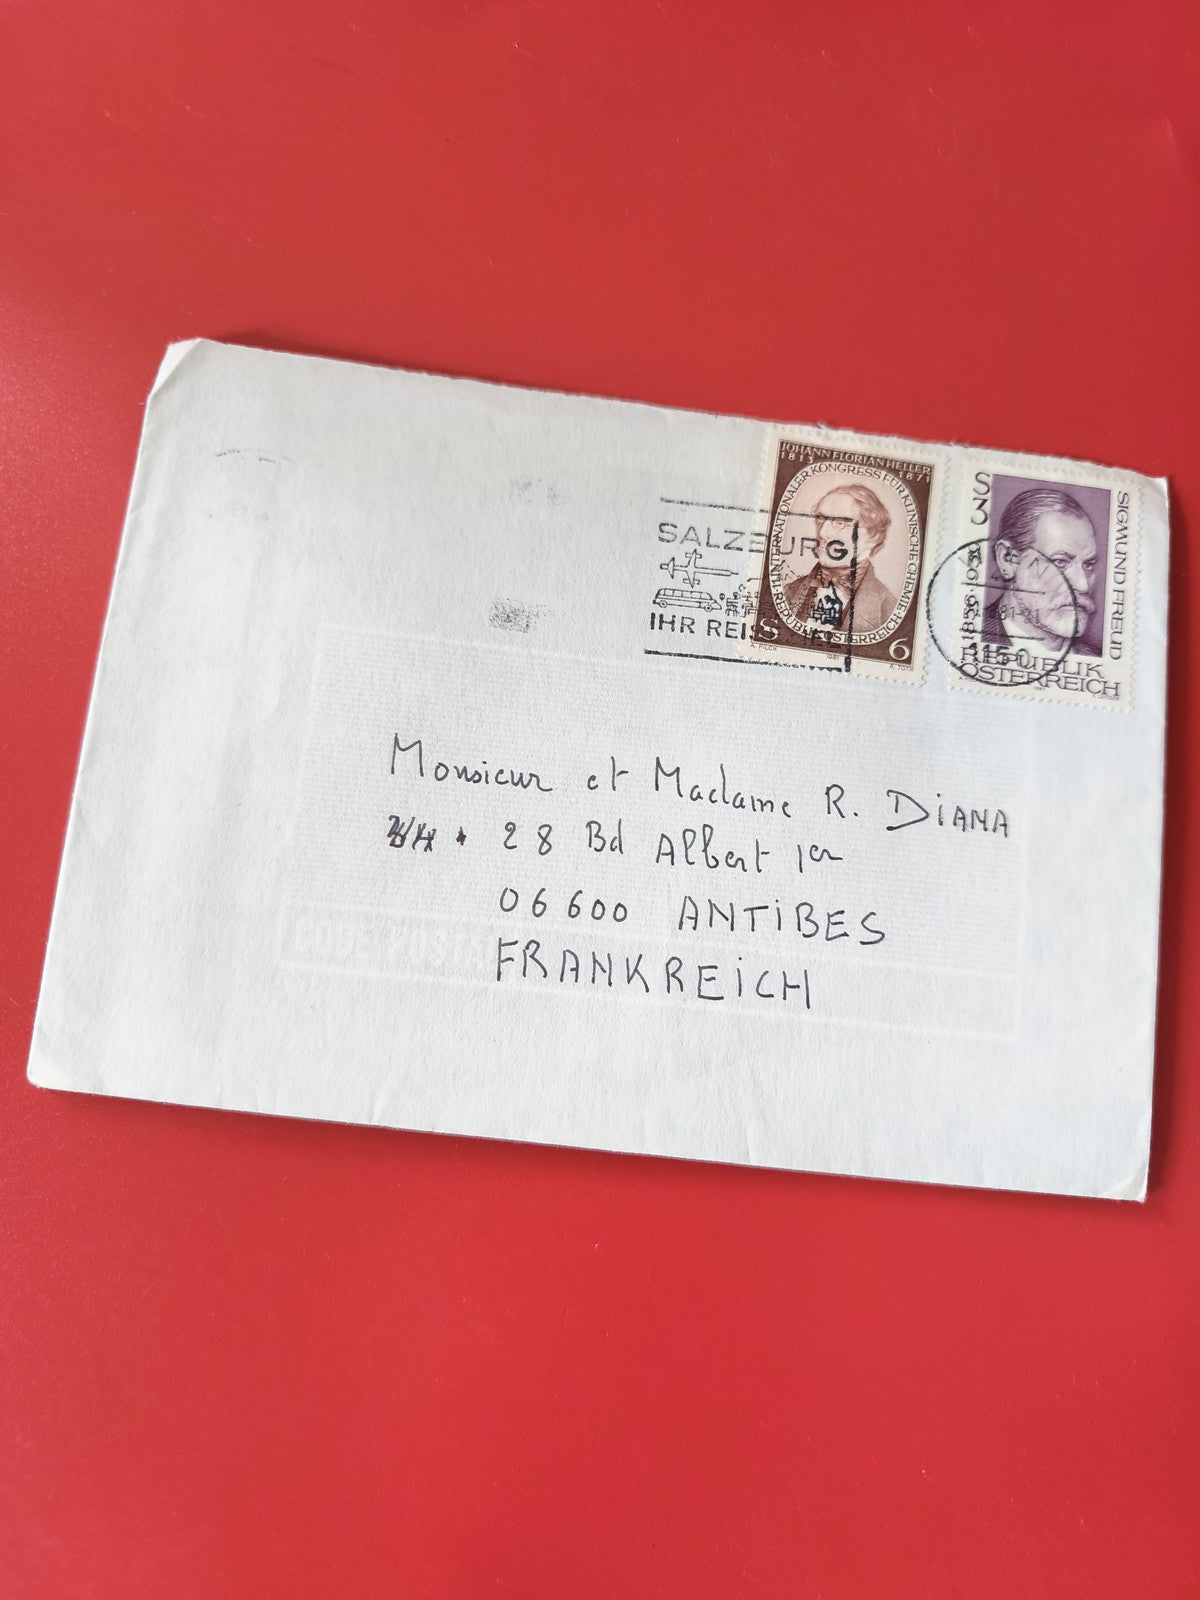 SALZBURG
IHR REISEZIEL
JOHANN FLORIAN HELLER
1813 1871
11. INTERNATIONALER KONGRESS FÜR KLINISCHE CHEMIE
REPUBLIK ÖSTERREICH
S 6
A. PILCH 1981 R. TOTH
S 3
SIGMUND FREUD
1856-1939
REPUBLIK
ÖSTERREICH
1981
WIEN
1150
Monsieur et Madame R. DiANA
28 Bd Albert 1er
06600 ANTiBES
FRANKREiCH